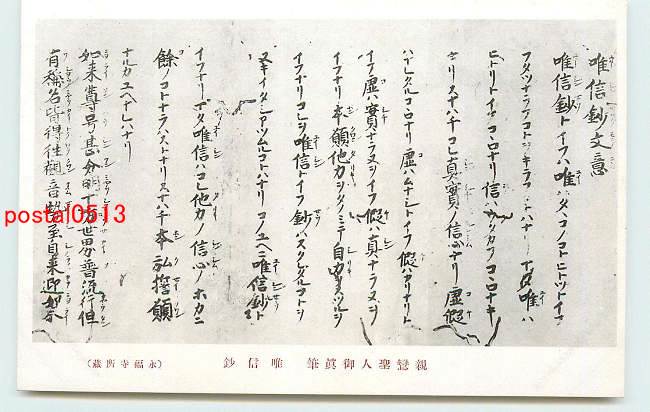 唯信鈔文意
唯信鈔トイフハ唯ハタヽコノコトヒトツトイフ
フタツナラフコトヲキラフコトハナリマタ唯ハ
ヒトリトイフコヽロナリ信ハウタカフコヽロナキ
ナリスナハチコレ真實ノ信心ナリ虚假
ハナレタルコヽロナリ虚ハムナシトイフ假ハカリナリト
イフ虚ハ實ナラヌヲイフ假ハ真ナラヌヲ
イフナリ本願他力ヲタノミテ自力ヲハナレタル
イフナリコレヲ唯信トイフ鈔ハスクレタルコトヲ
ヌキイタシアツムルコトハナリコノユヘニ唯信鈔ト
イフナリマタ唯信ハコレ他力ノ信心ノホカニ
餘ノコトナラハストナリスナハチ本弘誓願
ナルカユヘナレハナリ
如来尊号甚分明十方世界普流行但
有稱名皆得往觀音勢至自来迎如来
親鸞聖人御眞筆 唯信鈔
（永福寺所藏）
postal0513